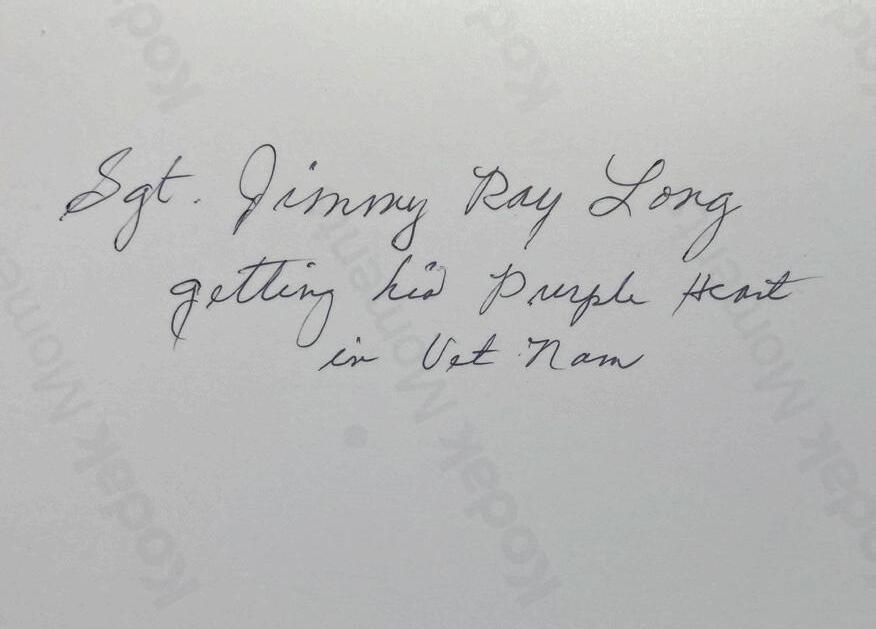 Sgt. Jimmy Ray Long
getting his Purple Heart
in Vet Nam
Kodak Moments
Kodak Moments
Kodak Moments